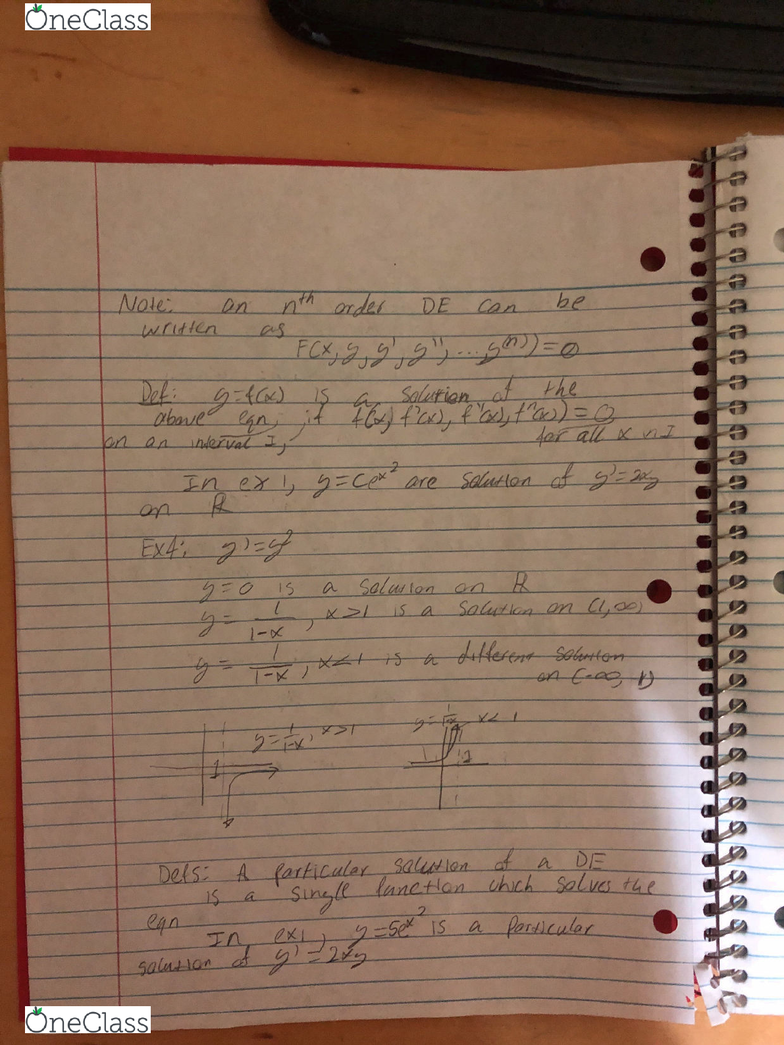 OneClass
Note: an nth order DE can be
written as
F(x, y, y', y'', ..., y^(n)) = 0
Def: y=f(x) is a solution of the
above eqn, if f(x, f'(x), f''(x), f^n(x)) = 0
on an interval I, for all x in I
In ex 1, y=Ce^x² are solution of y'=2xy
on ℝ
Ex4: y'=y²
y=0 is a solution on ℝ
y = 1/(1-x), x>1 is a solution on (1,∞)
y = 1/(1-x), x<1 is a different solution
on (-∞, 1)
y=1/(1-x), x>1
1
y=1/(1-x), x<1
1
Defs: A particular solution of a DE
is a single function which solves the
eqn
In ex1, y=5e^x² is a particular
solution of y'=2xy
OneClass